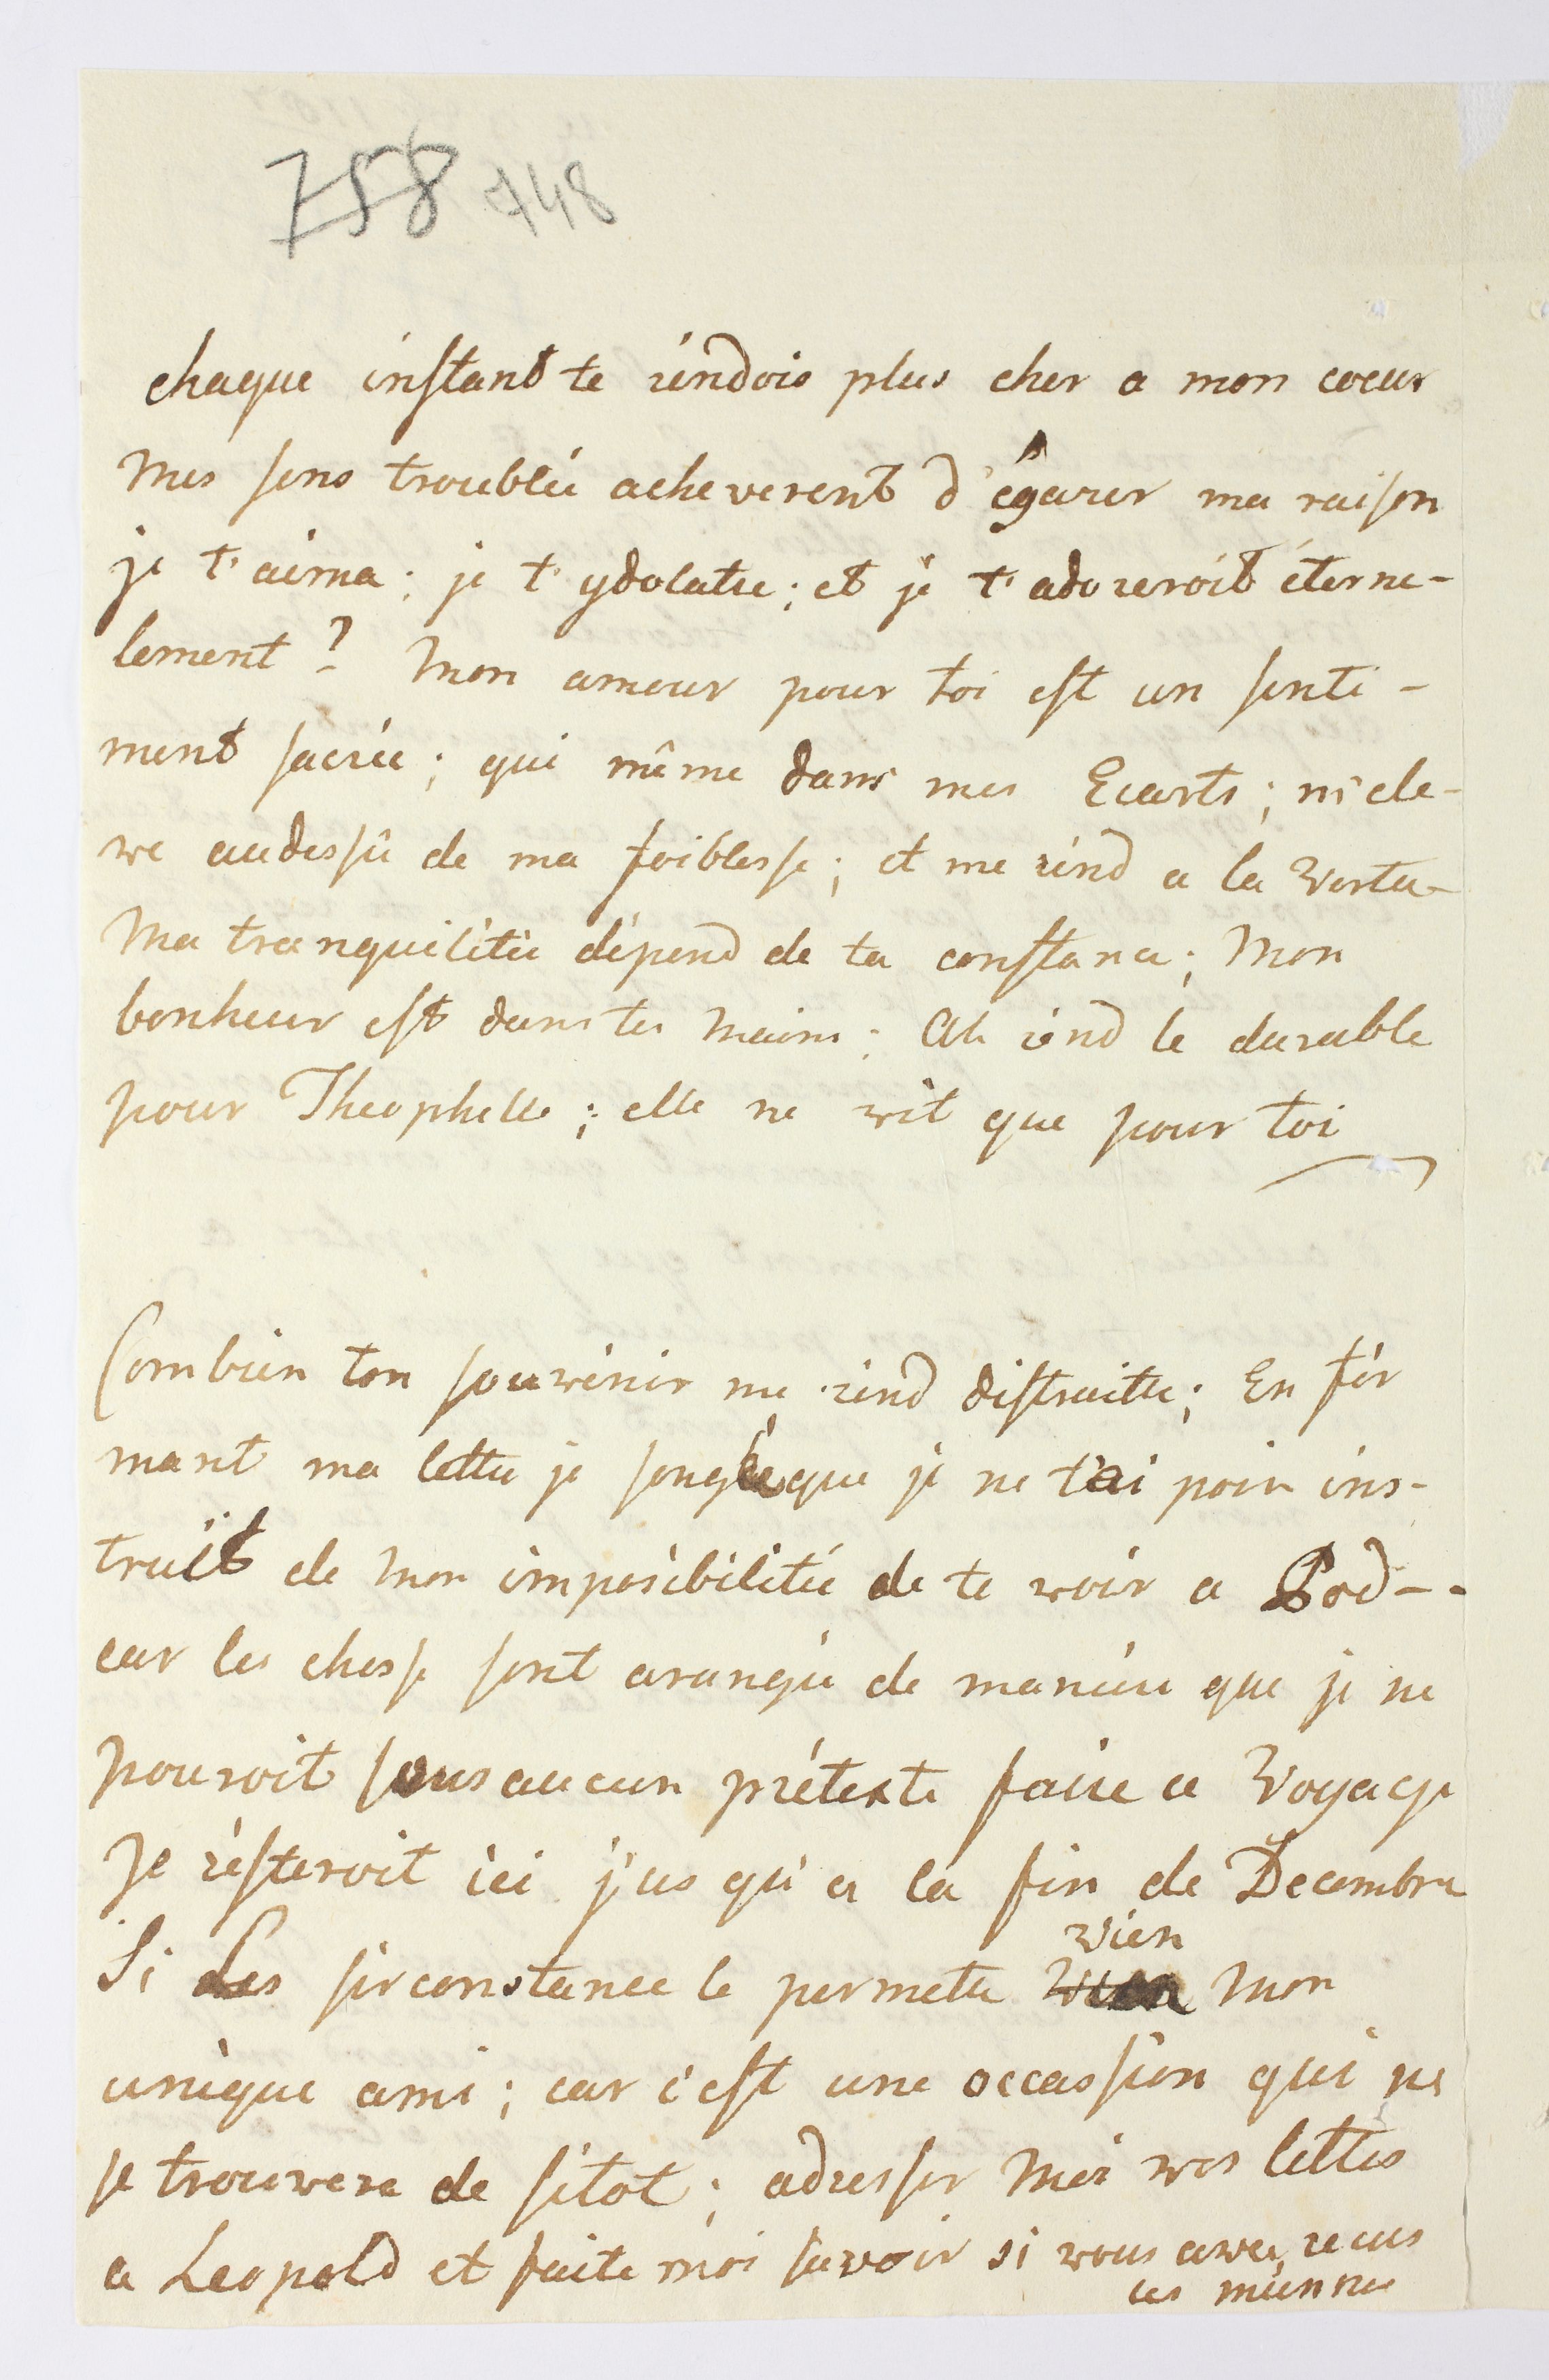 758 748
chaque instant te rendois plus cher a mon coeur
Mes sens troublée acheverent d'égarer ma raison
je t'aima ; je t'ydolatre ; et je t'adoreroit éterne-
lement ? Mon amour pour toi est un senti-
ment sacrée ; qui même dans mes Ecarts ; m'ele-
ve audessû de ma foiblesse ; et me rend a la Vertu-
Ma tranquilitée dépend de ta constance ; Mon
bonheur est dans tes Mains ; Ah rend le durable
pour Theophelle ; elle ne vit que pour toi
Combien ton souvenir me rend distraitte ; En fér
mant ma lettre je songée que je ne t'ai poin ins-
truit de Mon imposibilitée de te voir a Pod--
car les chosse sont arangée de manière que je ne
pouroit sous aucun prétexte faire ce Voyage
Je résteroit ici j'us qu'a la fin de Decembre
Si Les sirconstance le permette Vien Mon
vien
unique ami ; car c'est une occassion qui ne
se trouvera de sitot ; adresser Moi vos lettres
a Leopold et faite moi savoir si vous avez recus
ces miennes